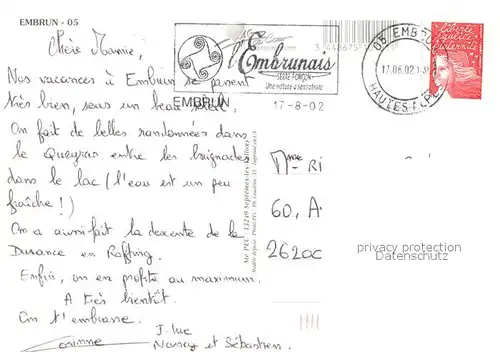 EMBRUN - 05
Chère Mamie,
Nos vacances à Embrun se passent
très bien, sous un beau soleil.
On fait de belles randonnées dans
le Queyras entre les baignades
dans le lac (l'eau est un peu
fraîche !)
On a aussi fait la descente de la
Durance en Rafting.
Enfin, on en profite au maximum.
A très bientôt.
On t'embrasse.
Corinne
J. Luc
Nancy et Sébastien.
l'Embrunais
SERRE-PONÇON
Une nature à sensations
EMBRUN 17-8-02
05 EMBRUN
17.08.02
HAUTES-ALPES
Liberté
Égalité
Fraternité
Mme RI
60, A
2620C
privacy protection
Datenschutz